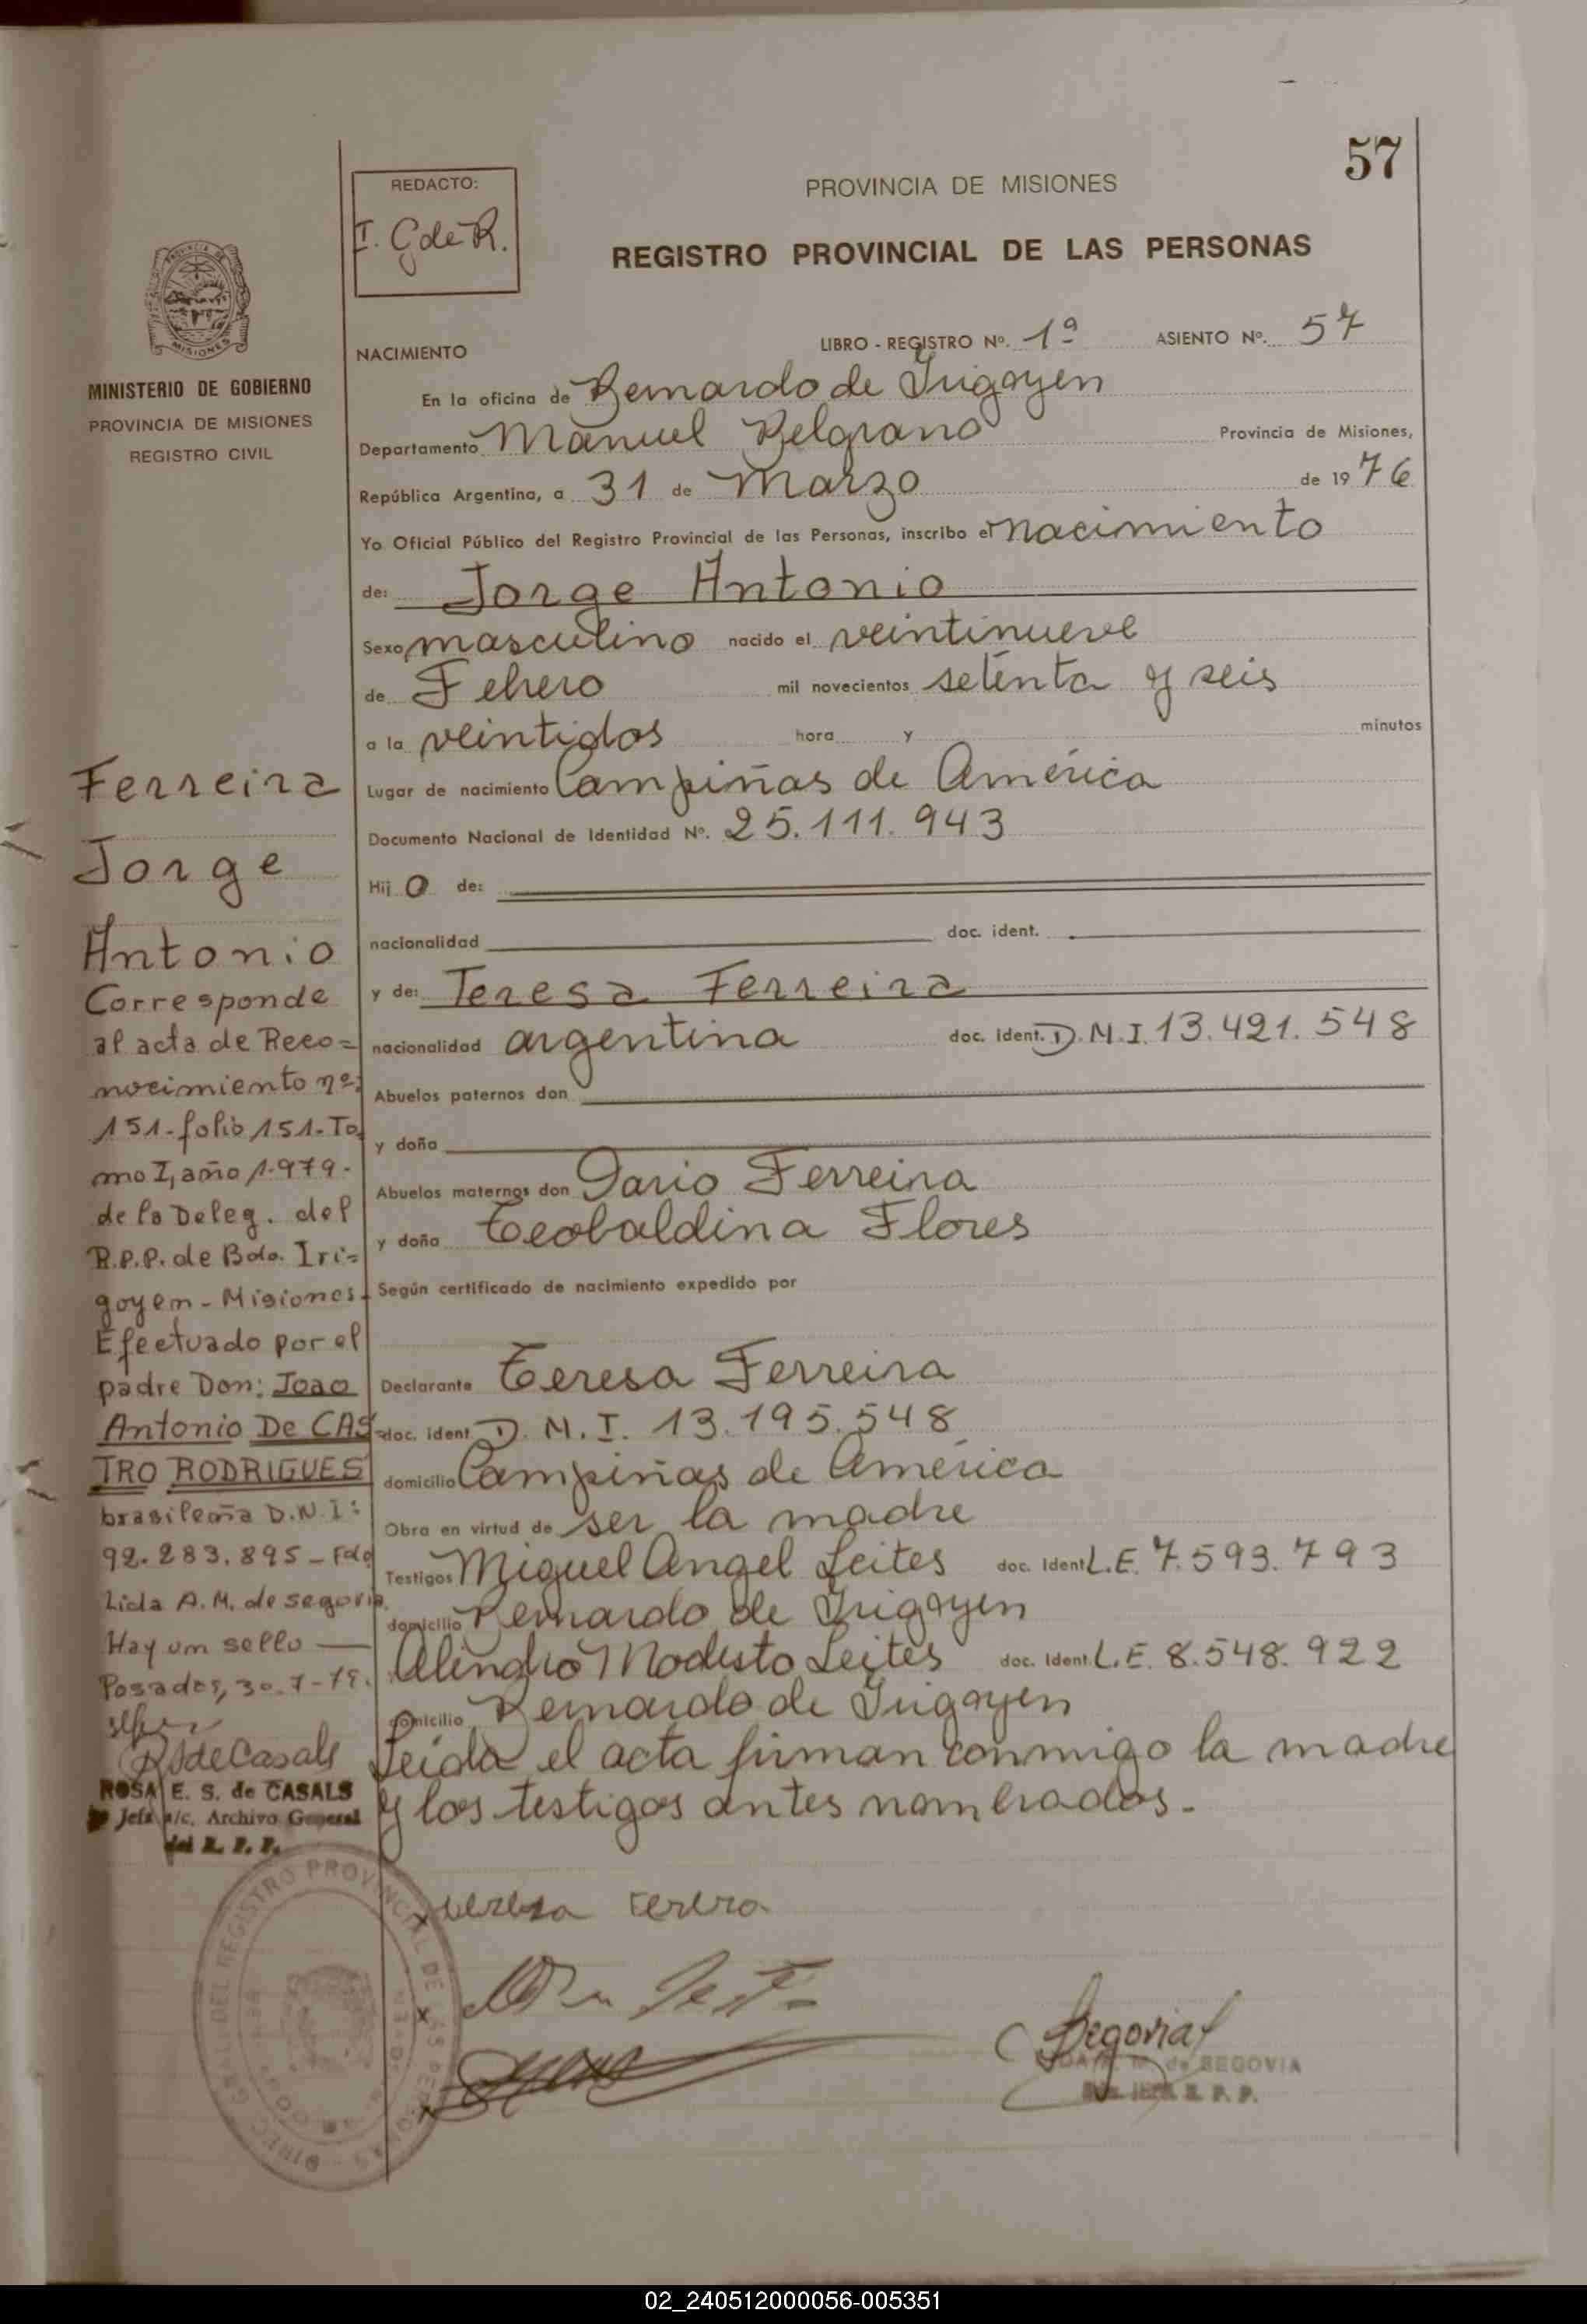 57
REDACTO:
I. G de R.
PROVINCIA DE MISIONES
REGISTRO PROVINCIAL DE LAS PERSONAS
MISIONES
MINISTERIO DE GOBIERNO
PROVINCIA DE MISIONES
REGISTRO CIVIL
NACIMIENTO LIBRO - REGISTRO Nº. 1º ASIENTO Nº. 57
En la oficina de Bernardo de Irigoyen
Departamento Manuel Belgrano Provincia de Misiones,
República Argentina, a 31 de Marzo de 1976
Yo Oficial Público del Registro Provincial de las Personas, inscribo el nacimiento
de: Jorge Antonio
Sexo masculino nacido el veintinueve
de Febrero mil novecientos setenta y seis
a la veintidos hora y minutos
Lugar de nacimiento Campiñas de América
Documento Nacional de Identidad Nº. 25.111.943
Hijo de:
nacionalidad doc. ident.
y de: Teresa Ferreira
nacionalidad argentina doc. ident. D.N.I. 13.421.548
Abuelos paternos don
y doña
Abuelos maternos don Dario Ferreira
y doña Teobaldina Flores
Según certificado de nacimiento expedido por
Declarante Teresa Ferreira
doc. ident. D.N.I. 13.195.548
domicilio Campiñas de América
Obra en virtud de ser la madre
Testigos Miguel Angel Leites doc. Ident. L.E. 7.593.793
domicilio Bernardo de Irigoyen
Modesto Leites doc. Ident. L.E. 8.548.922
domicilio Bernardo de Irigoyen
Leida el acta firman conmigo la madre
y los testigos antes nombrados.-
Ferreira
Jorge
Antonio
Corresponde
al acta de Reco=
nocimiento nº:
151-folio 151-To
mo I, año 1.979.
de la Deleg. del
R.P.P. de Bdo. Iri=
goyen - Misiones-
Efectuado por el
padre Don: Joao
Antonio De CAS
TRO RODRIGUES
brasileña D.N.I:
92.283.895 - Fdo
Lida A.M. de Segovia.
Hay un sello
Posadas, 30-7-79.
RSdeCasals
ROSA E. S. de CASALS
Jefa a/c. Archivo General
del R. P. P.
x Teresa Ferera
x
Segovia
de SEGOVIA
R. P. P.
DIREC. GRAL. DEL REGISTRO PROVINCIAL DE LAS PERSONAS
02_240512000056-005351